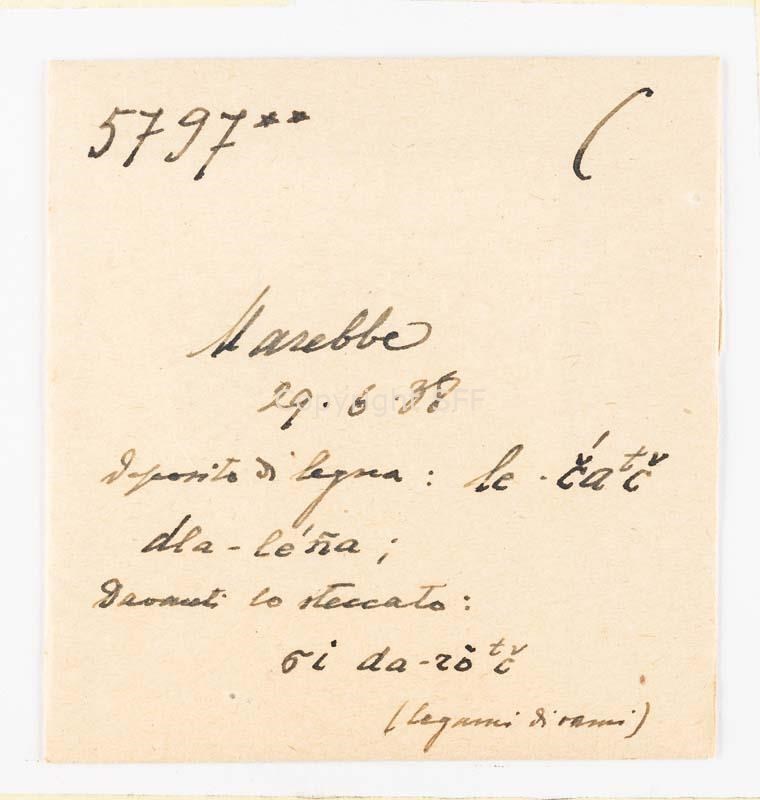 5797** (
Marebbe
29.6.38
Copyright SFF
Deposito di legna: le-čátč
dla-léña;
Davanti lo steccato:
si da-rōtč
(legami di rami)